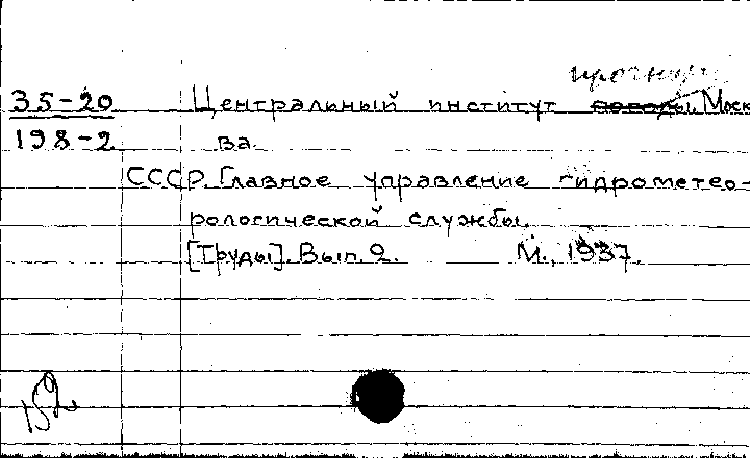 прогнозов
35-20 Центральный институт погоды. Моск
198-2 ва.
СССР. Главное управление гидрометео-
рологической службы.
[Труды]. Вып. 2. М., 1937.
152